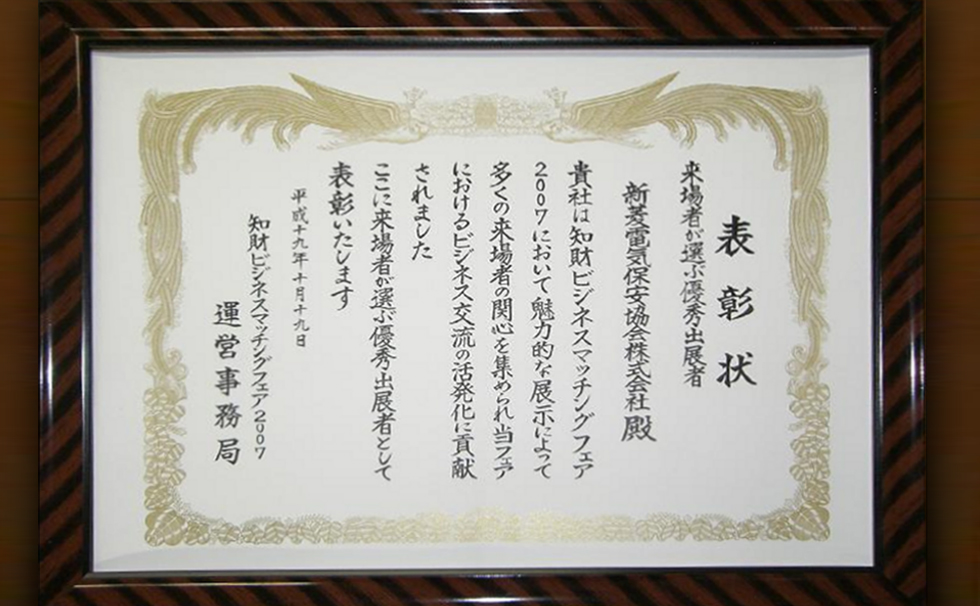 表彰状
来場者が選ぶ優秀出展者
新菱電気保安協会株式会社殿
貴社は知財ビジネスマッチングフェア
2007において魅力的な展示によって
多くの来場者の関心を集められ当フェア
におけるビジネス交流の活発化に貢献
されました
ここに来場者が選ぶ優秀出展者として
表彰いたします
平成十九年十月十九日
知財ビジネスマッチングフェア2007
運営事務局